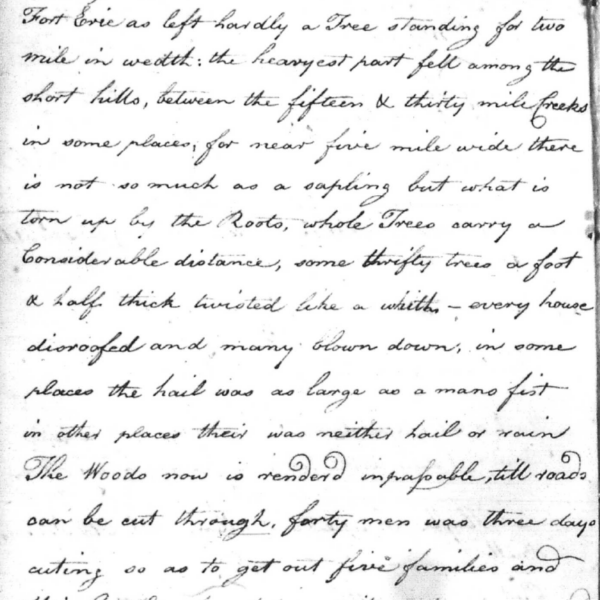 Fort Erie as left hardly a Tree standing for two
mile in wedth: the heavyest part fell among the
short hills, between the fifteen & thirty mile Creeks
in some places, for near five mile wide there
is not so much as a sapling but what is
torn up by the Roots, whole Trees carry a
Considerable distance, some thrifty trees a foot
& half thick twisted like a whith - every house
disroofed and many blown down, in some
places the hail was as large as a mans fist
in other places their was neither hail or rain
The Woods now is renderd inpassable, till roads
can be cut through, forty men was three days
cuting so as to get out five families and